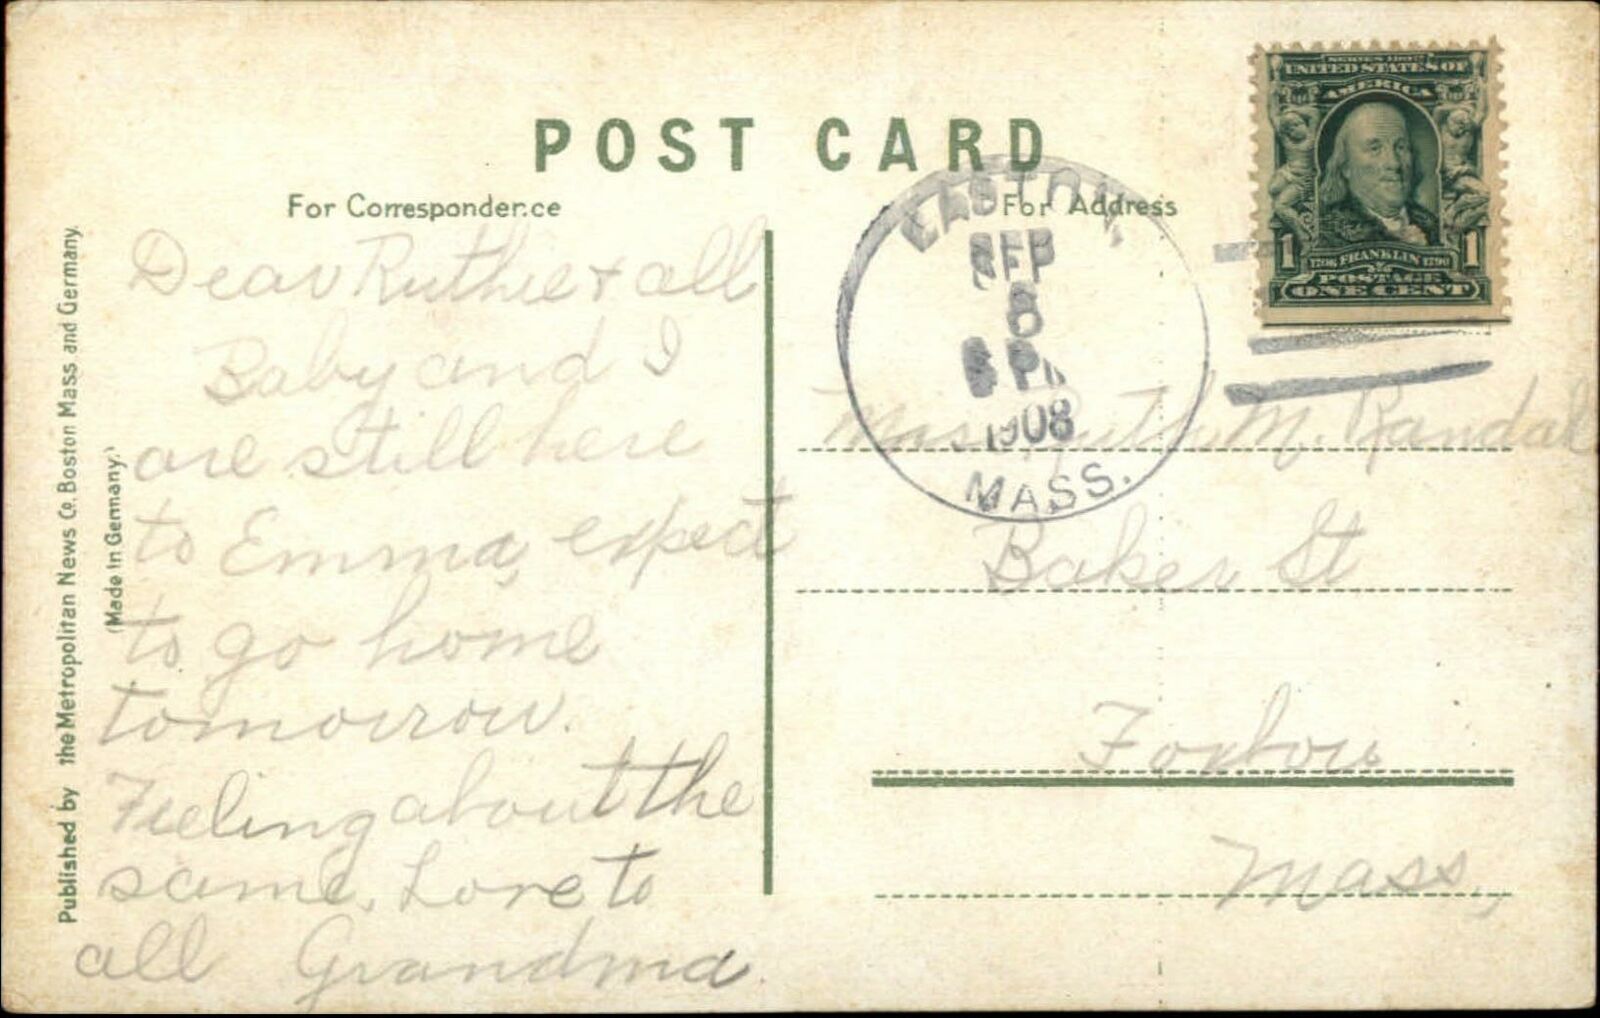 POST CARD
For Correspondence
For Address
Dear Ruthie & all
Baby and I
are still here
to Emma, expect
to go home
tomorrow.
Feeling about the
same. Love to
all Grandma
EASTON
SEP
8
PM
1908
MASS.
SERIES 1902
UNITED STATES OF
AMERICA
1706 FRANKLIN 1790
1 1
POSTAGE
ONE CENT
Miss Ruth M. Randall
Baker St
Foxboro
Mass,
Published by the Metropolitan News Co. Boston Mass and Germany.
(Made in Germany.)